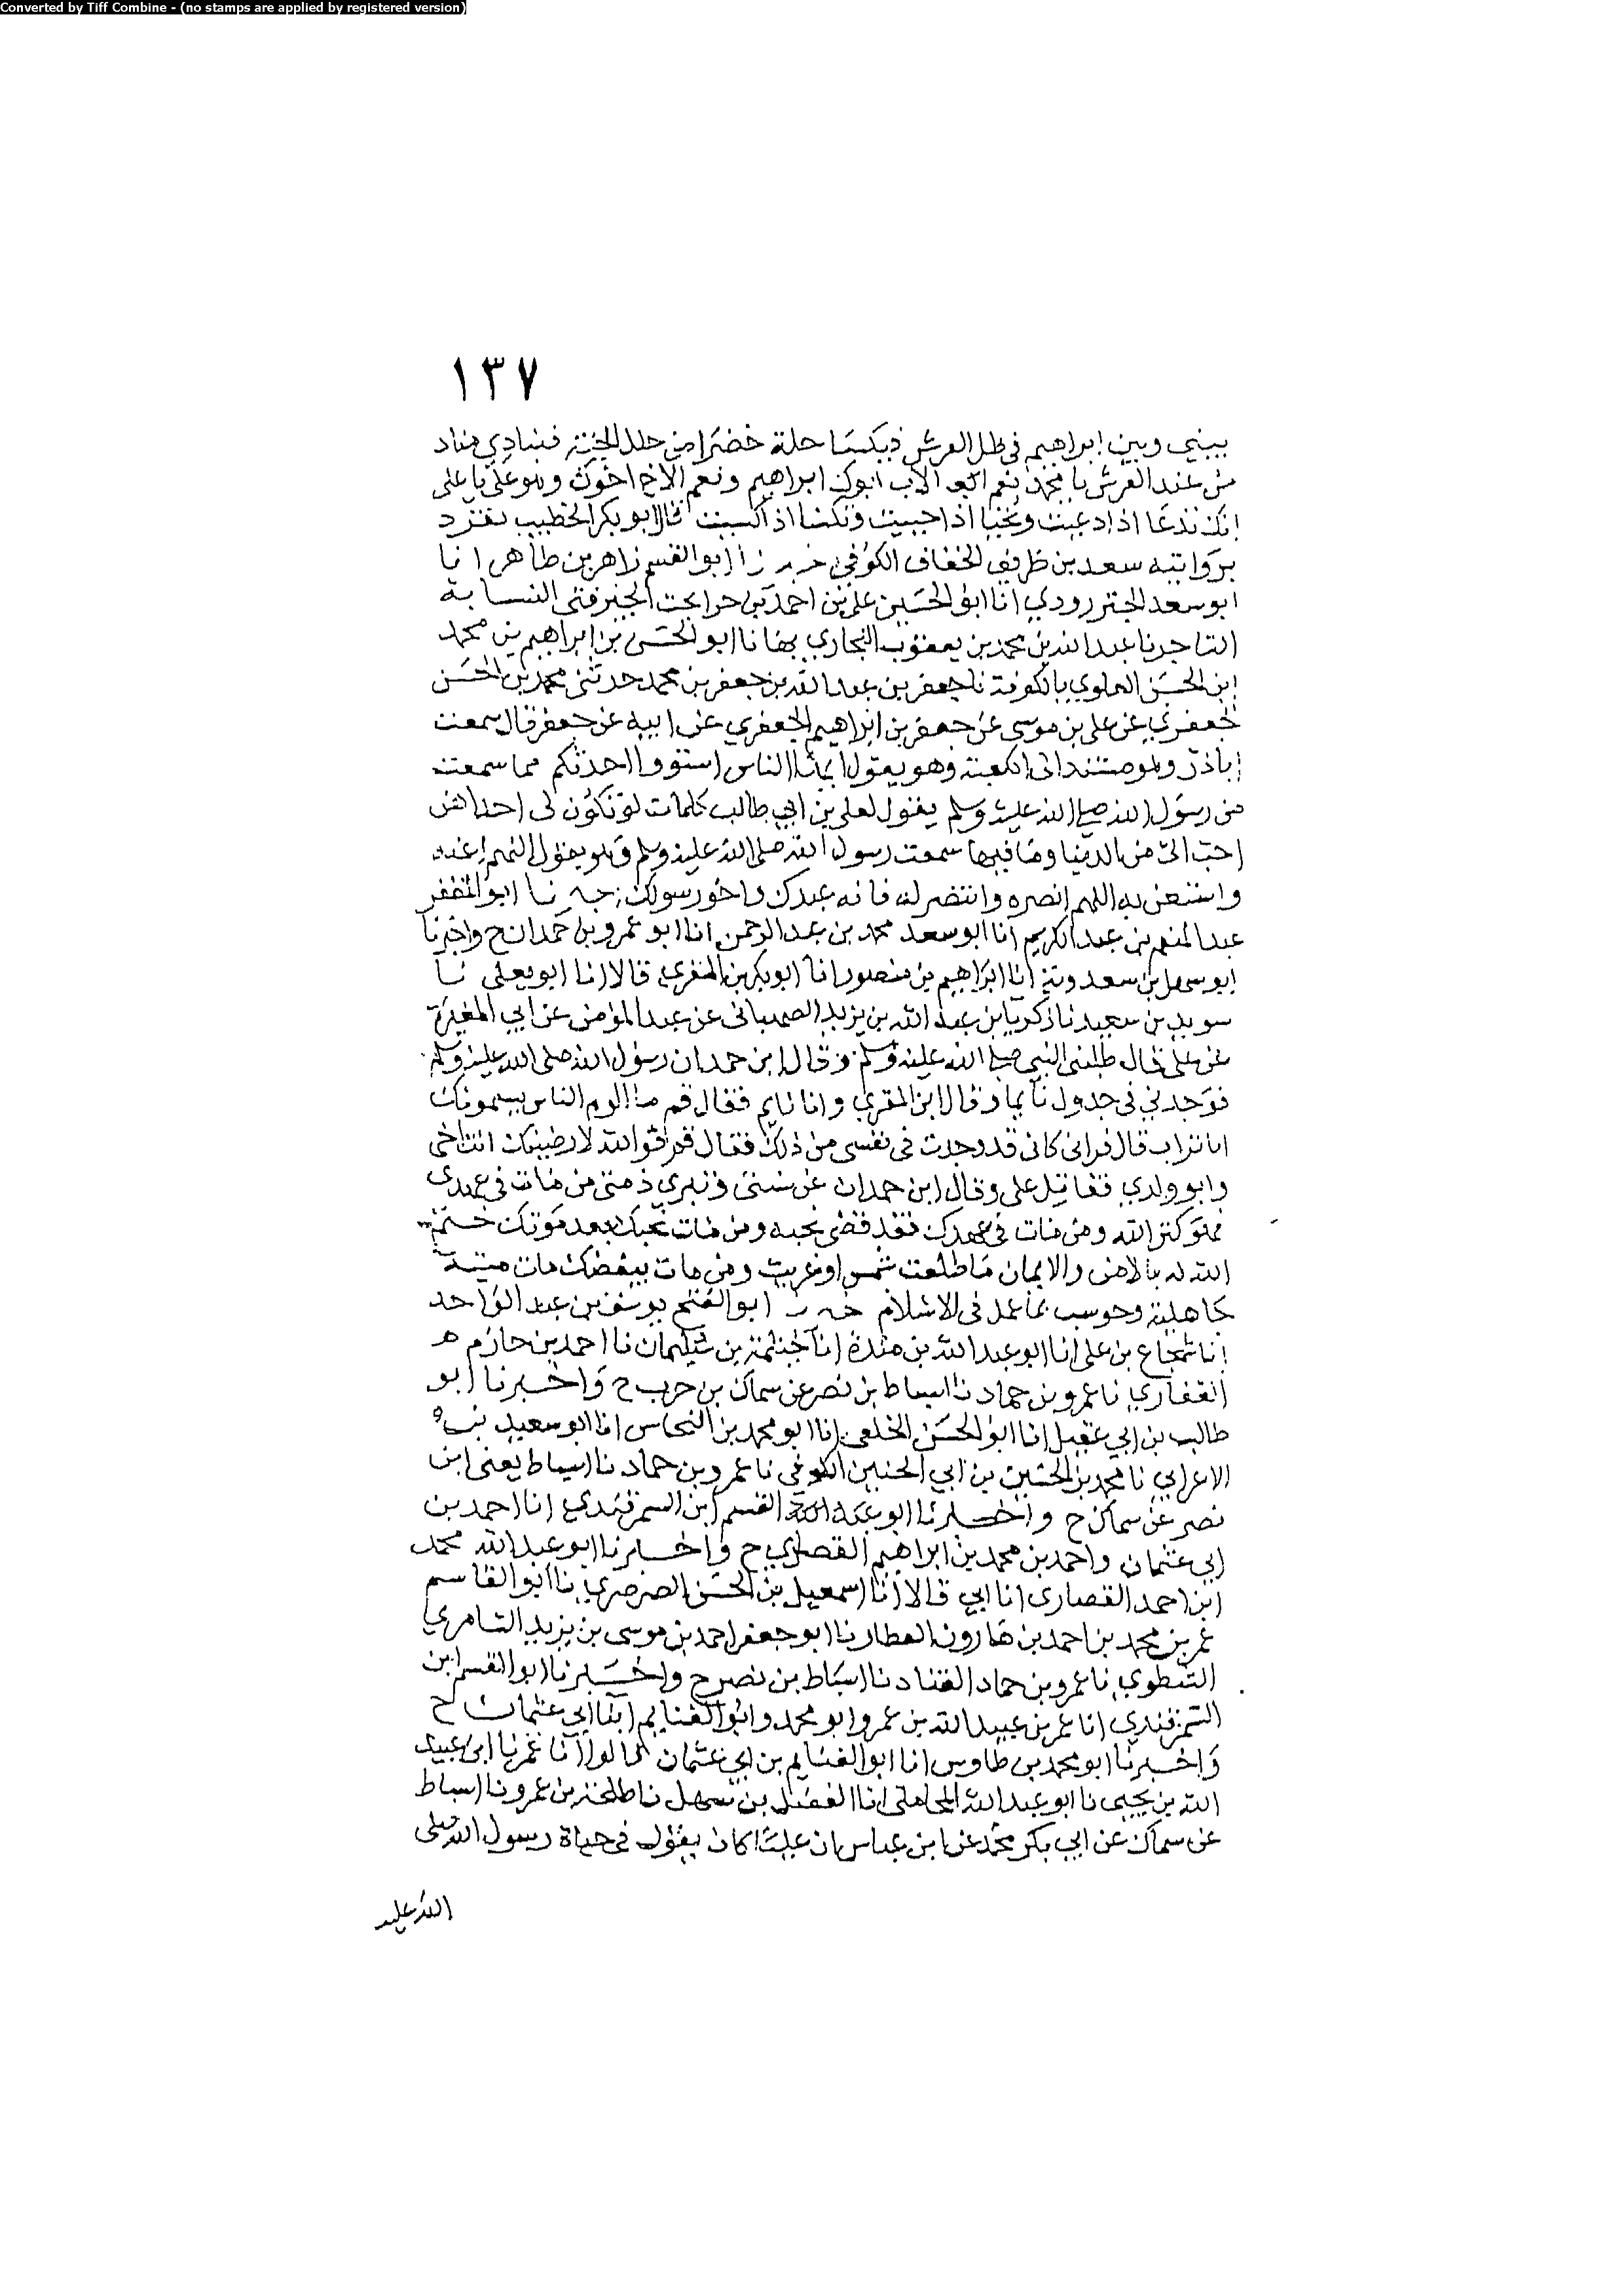 Converted by Tiff Combine - (no stamps are applied by registered version)
١٣٧
بيني وبين ابراهيم في ظل العرش فيكسا حلة خضرا من حلل الجنة فينادي مناد
من عند العرش يا محمد نعم الاب ابوك ابراهيم ونعم الاخ اخوك وهو علي يا علي
انك تدعا اذا دعيت وتحيا اذا حييت وتكسا اذا كسيت قال ابو بكر الخطيب تفرد
بروايته سعد بن ظريف الخفاف الكوفي اخبرنا ابو القسم زاهر بن طاهر انا
ابو سعد الجنزرودي انا ابو الحسين علي بن احمد بن النسابة
التاجر نا عبد الله بن محمد بن يعقوب البخاري بها نا ابو الحسن بن ابراهيم بن محمد
ابن الحسن العلوي بالكوفة نا جعفر بن عبد الله بن جعفر بن محمد حدثني محمد بن الحسن
الجعفري عن علي بن موسى عن جعفر بن ابراهيم الجعفري عن ابيه عن جعفر قال سمعت
اباذر وهو مستند الى الكعبة وهو يقول ايها الناس استووا احدثكم مما سمعت
من رسول الله صلى الله عليه وسلم يقول لعلي بن ابي طالب كلمات لو تكون لي احداهن
احب الي من الدنيا وما فيها سمعت رسول الله صلى الله عليه وسلم وهو يقول اللهم اعنه
واستعن به اللهم انصره وانتصر له فانه عبدك واخو رسولك اخبرنا ابو المظفر
عبد المنعم بن عبد الكريم انا ابو سعد محمد بن عبد الرحمن انا ابو عمرو بن حمدان ح واخبرنا
ابو سهل بن سعدوية انا ابراهيم بن منصور انا ابو بكر بن المقري قالا انا ابو يعلى نا
سويد بن سعيد نا زكريا بن عبد الله بن يزيد الصهباني عن عبد المؤمن عن ابي المغيرة
عن علي قال طلبني النبي صلى الله عليه وسلم وقال ابن حمدان رسول الله صلى الله عليه وسلم
فوجدني في جدول نايما وقال ابن المقري وانا نايم فقال قم ما الوم الناس يسمونك
ابا تراب قال فراني كاني قد وجدت في نفسي من ذلك فقال قم فوالله لارضينك انت اخي
وابو ولدي تقاتل علي وقال ابن حمدان عن سنتي وتبري ذمتي من مات في عهدي
فهو كنز الله ومن مات في عهدك فقد قضى نحبه ومن مات يحبك بعد موتك ختم
الله له بالامن والايمان ما طلعت شمس او غربت ومن مات يبغضك مات ميتة
جاهلية وحوسب بما عمل في الاسلام اخبرنا ابو الفتح يوسف بن عبد الواحد
انا شجاع بن علي انا ابو عبد الله بن مندة انا خيثمة بن سليمان نا احمد بن حازم
الغفاري نا عمرو بن حماد نا اسباط بن نصر عن سماك بن حرب ح واخبرنا ابو
طالب بن ابي عقيل انا ابو الحسن الخلعي انا ابو محمد بن النحاس انا ابو سعيد بن
الاعرابي نا محمد بن الحسين بن ابي الحنين الكوفي نا عمرو بن حماد نا اسباط يعني ابن
نصر عن سماك ح واخبرنا ابو القسم ابن السمرقندي انا احمد بن
ابي عثمان واحمد بن محمد بن ابراهيم القصاري ح واخبرنا ابو عبد الله محمد
ابن احمد القصاري انا ابي قالا انا اسمعيل بن الحسن الصرصري نا ابو القاسم
عمر بن محمد بن احمد بن هارون العطار نا ابو جعفر احمد بن موسى بن يزيد السامري
الشطوي نا عمرو بن حماد القناد نا اسباط بن نصر ح واخبرنا ابو القسم ابن
السمرقندي انا عمر بن عبيد الله بن عمر وابو محمد وابو الغنايم ابنا ابي عثمان ح
واخبرنا ابو محمد بن طاوس انا ابو الغنايم بن ابي عثمان قالوا انا عمر نا ابي عبيد
الله بن يحيى نا ابو عبد الله المحاملي انا الفضل بن سهل نا طلحة بن عمرو نا اسباط
عن سماك عن ابي بكر محمد عن ابن عباس ان عليا كان يقول في حياة رسول الله صلى
الله عليه